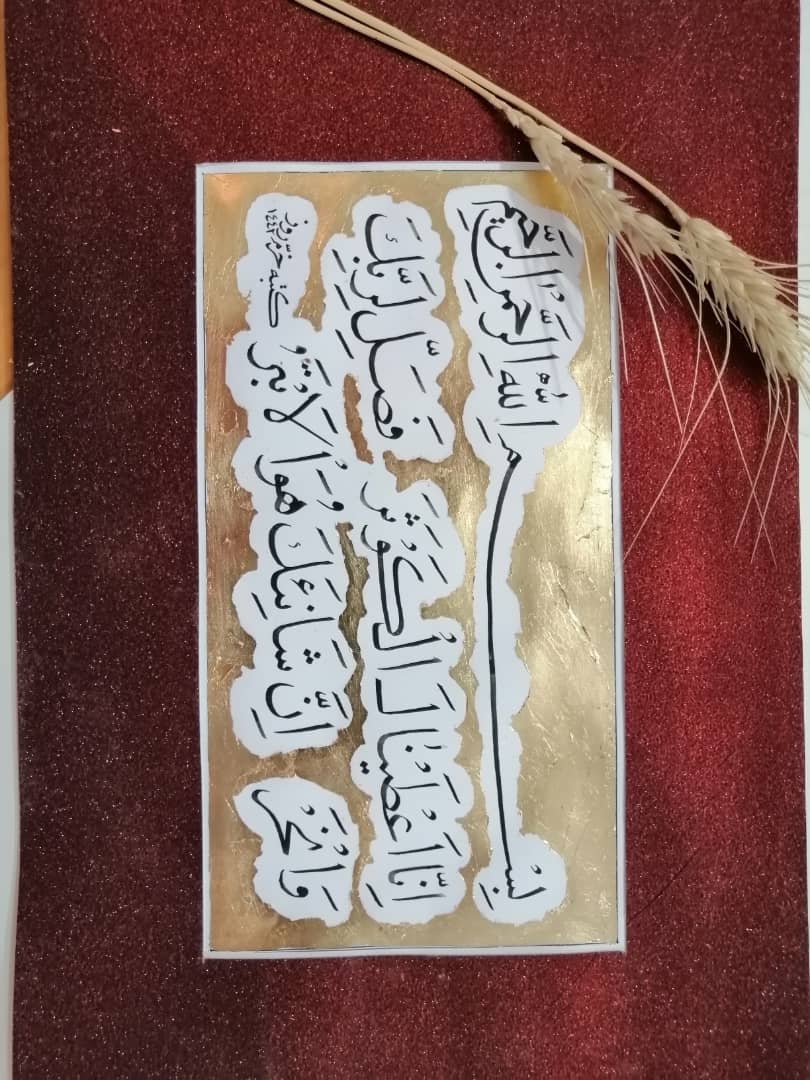 بِسْمِ اللّٰهِ الرَّحْمٰنِ الرَّحِيمِ
اِنَّا اَعْطَيْنَاكَ الْكَوْثَرَ فَصَلِّ لِرَبِّكَ
وَانْحَرْ اِنَّ شَانِئَكَ هُوَ الْاَبْتَرُ
كتبه